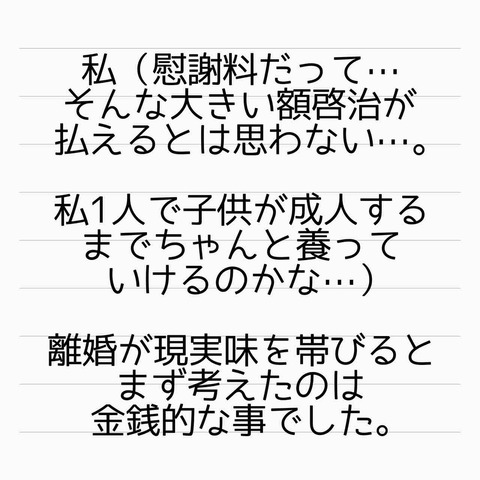 私（慰謝料だって…
そんな大きい額啓治が
払えるとは思わない…。
私1人で子供が成人する
までちゃんと養って
いけるのかな…）
離婚が現実味を帯びると
まず考えたのは
金銭的な事でした。